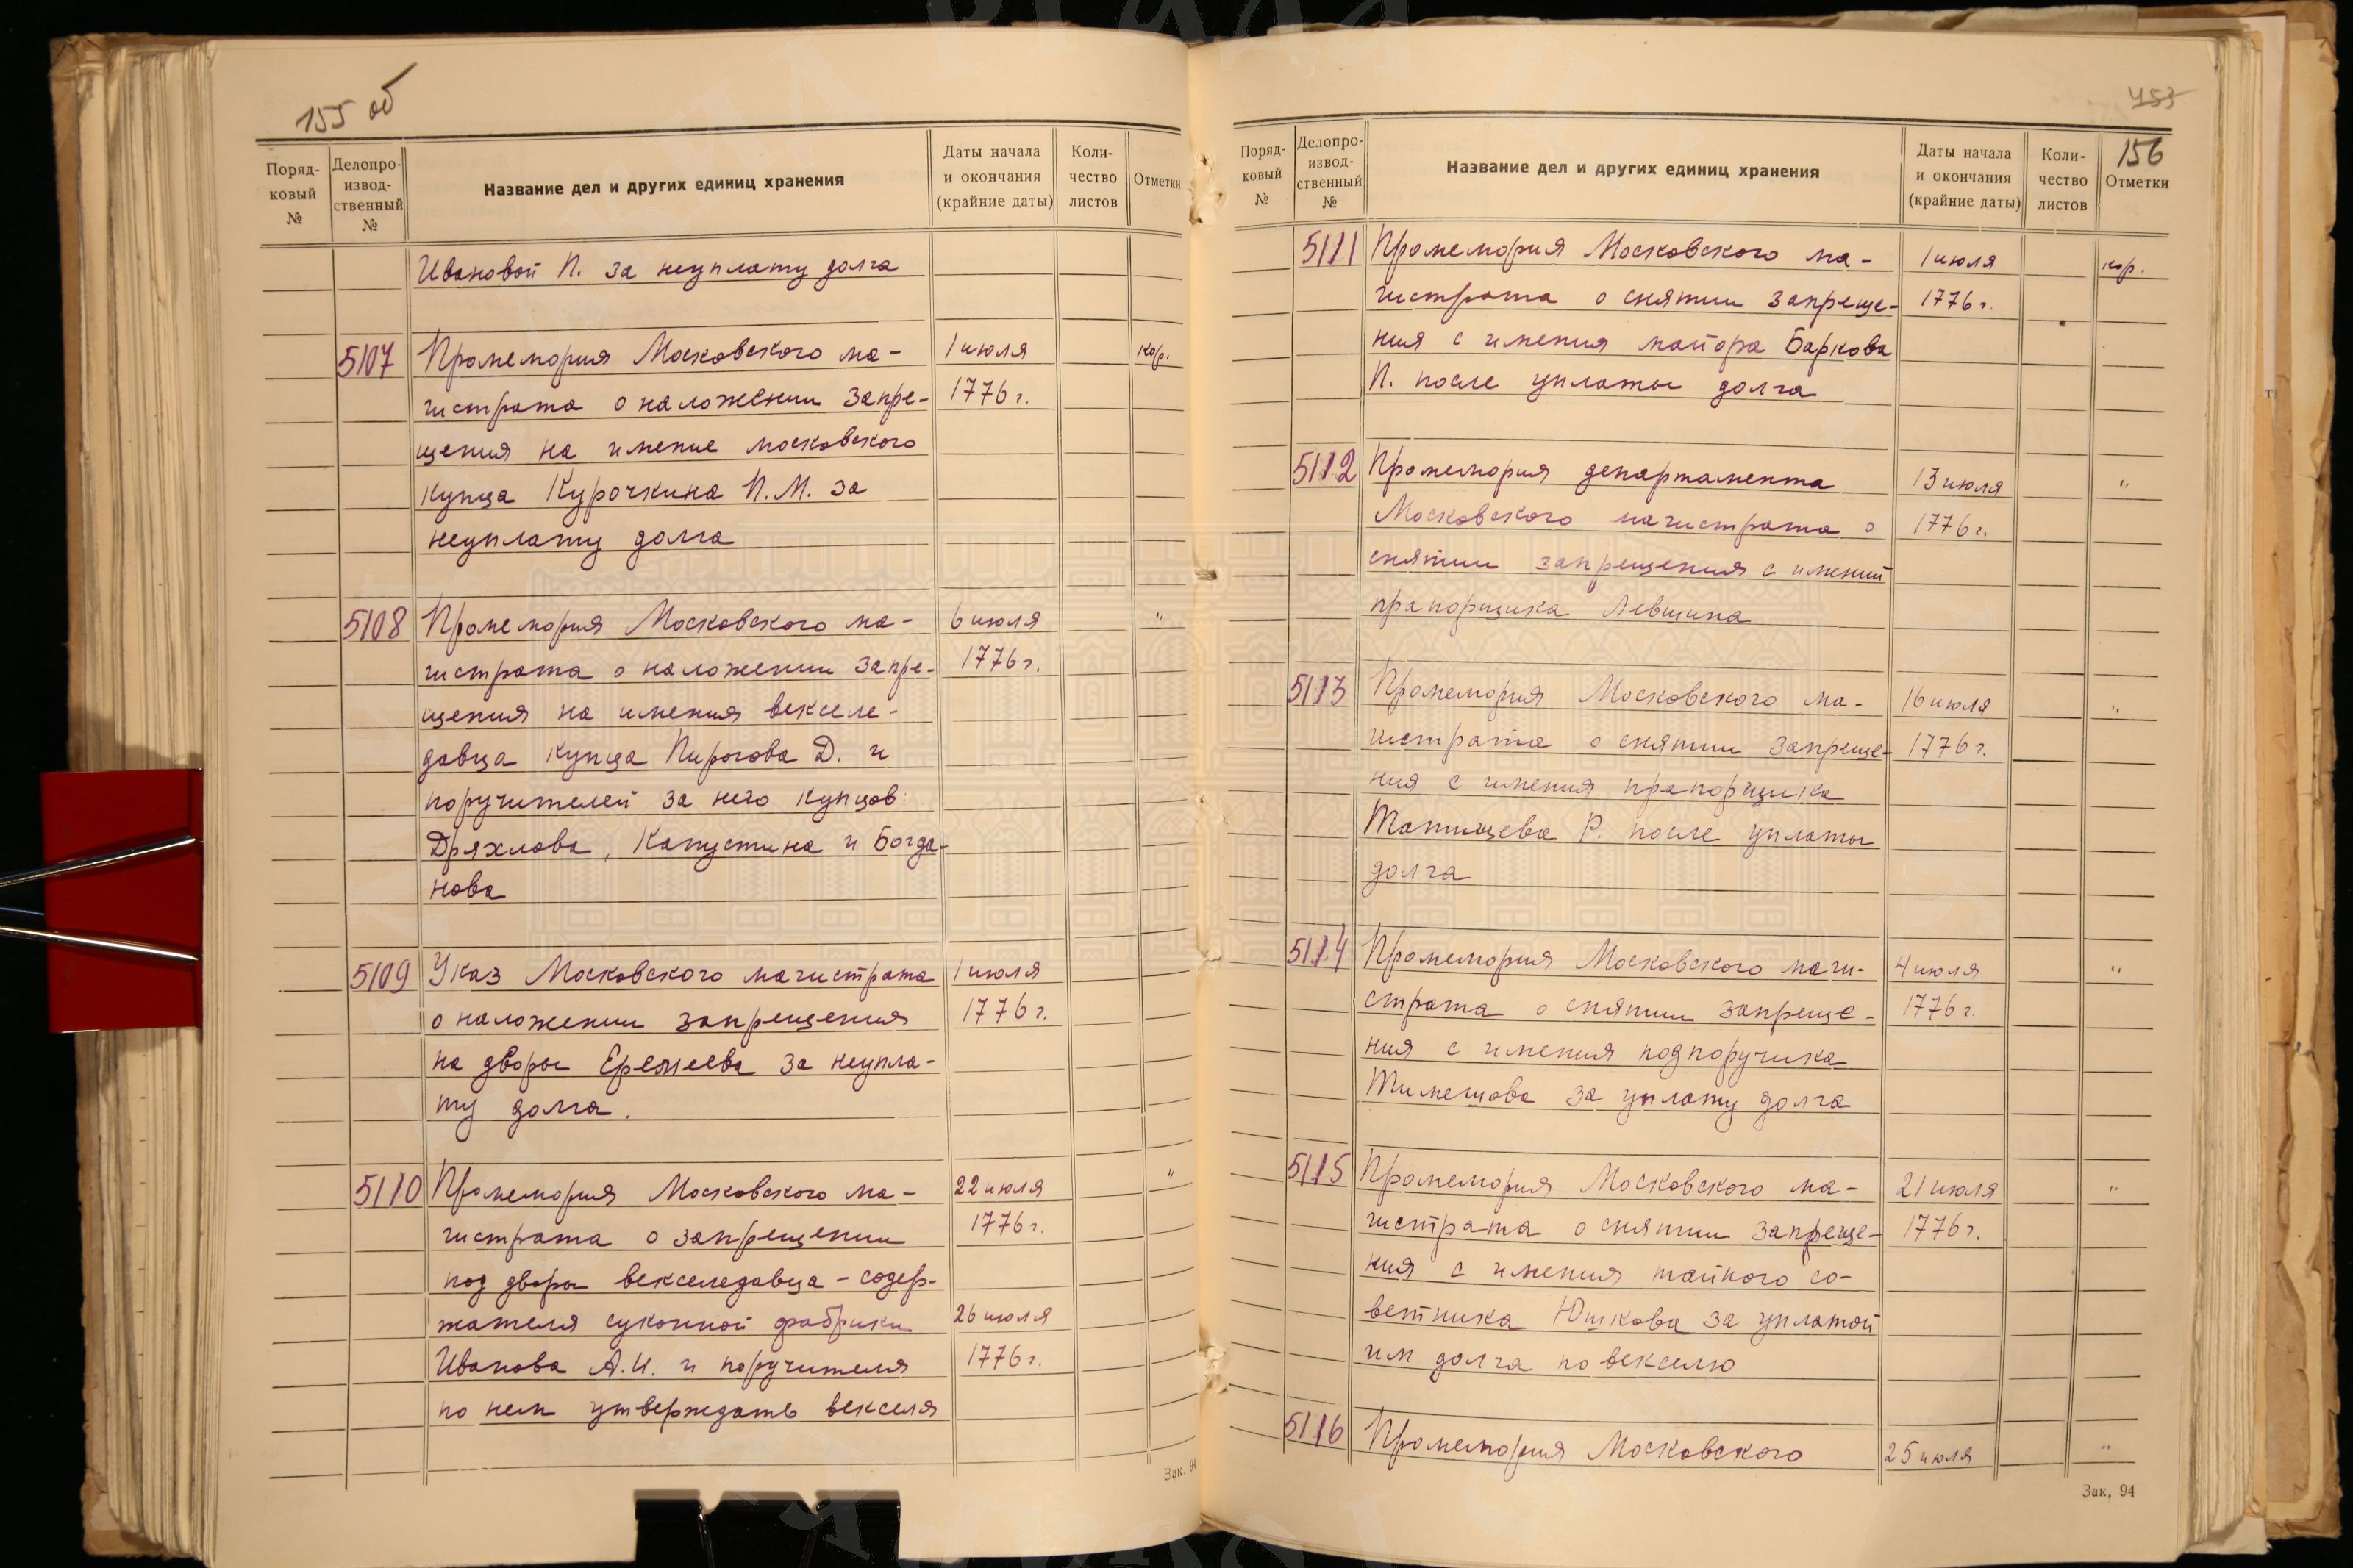 155 об
Поряд-
ковый
№
Делопро-
извод-
ственный
№
Название дел и других единиц хранения
Даты начала
и окончания
(крайние даты)
Коли-
чество
листов
Отметки
Ивановой П. за неуплату долга
5107 Промемория Московского ма- 1 июля кор.
гистрата о наложении запре- 1776 г.
щения на имение московского
купца Курочкина П.М. за
неуплату долга
5108 Промемория Московского ма- 6 июля "
гистрата о наложении запре- 1776 г.
щения на имения векселе-
давца купца Пирогова Д. и
поручителей за него купцов:
Дряхлова, Капустина и Богда-
нова
5109 Указ Московского магистрата 1 июля
о наложении запрещения 1776 г.
на дворы Еремеева за неупла-
ту долга.
5110 Промемория Московского ма- 22 июля "
гистрата о запрещении 1776 г.
под дворы векселедавца - содер-
жателя суконной фабрики 26 июля
Иванова А.И. и поручителя 1776 г.
по нем утверждать векселя
Зак. 94
453
156
Поряд-
ковый
№
Делопро-
извод-
ственный
№
Название дел и других единиц хранения
Даты начала
и окончания
(крайние даты)
Коли-
чество
листов
Отметки
5111 Промемория Московского ма- 1 июля кор.
гистрата о снятии запреще- 1776 г.
ния с имения майора Баркова
П. после уплаты долга
5112 Промемория департамента 13 июля "
Московского магистрата о 1776 г.
снятии запрещения с имений
прапорщика Левшина
5113 Промемория Московского ма- 16 июля "
гистрата о снятии запреще- 1776 г.
ния с имения прапорщика
Татищева Р. после уплаты
долга
5114 Промемория Московского маги- 4 июля "
страта о снятии запреще- 1776 г.
ния с имения подпоручика
Тимешова за уплату долга
5115 Промемория Московского ма- 21 июля "
гистрата о снятии запреще- 1776 г.
ния с имения тайного со-
ветника Юшкова за уплатой
им долга по векселю
5116 Промемория Московского 25 июля "
Зак. 94